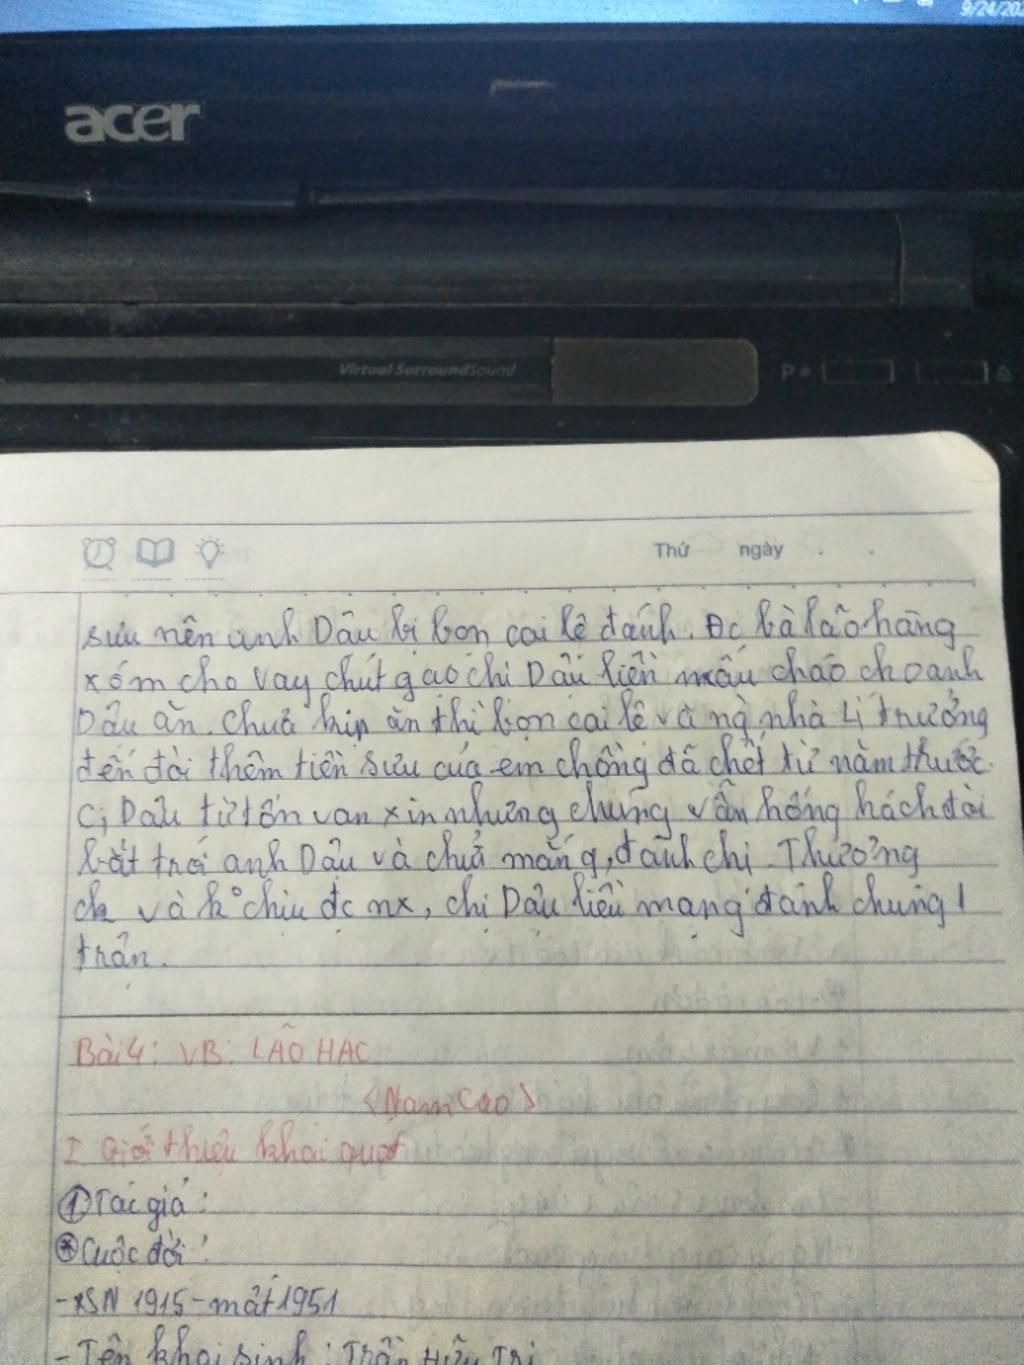 9/24/202
acer
Virtual SurroundSound
P
Thứ ngày
sưu nên anh Dậu bị bọn cai lệ đánh. Đc bà lão hàng
xóm cho vay chút gạo chị Dậu liền nấu cháo cho anh
Dậu ăn. Chưa kịp ăn thì bọn cai lệ và ng nhà Lí trưởng
đến đòi thêm tiền sưu của em chồng đã chết từ năm
Dậu từ tốn van xin nhưng chúng vẫn hống hách đòi
bắt trói anh Dậu và chửi mắng, đánh chị. Thương
ck và k° chịu đc nx, chị Dậu liều mạng đánh chúng 1
trận.
Bài 4: VB: LÃO HẠC
<Nam Cao>
I Giới thiệu khái quát
① Tác giả:
* Cuộc đời:
- SN 1915 - mất 1951
- Tên khai sinh: Trần Hữu Tri